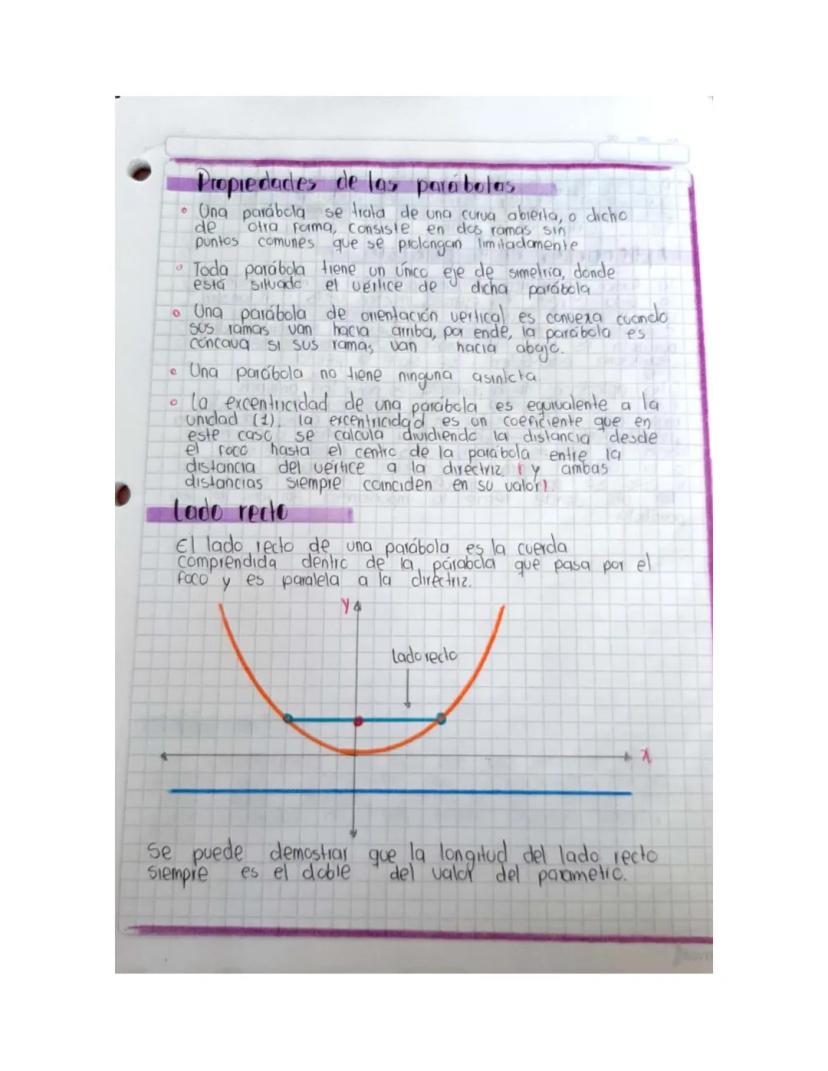 Propiedades de las parábolas
Una parábola se trata de una curva abierta, o dicho
de otra forma, consiste en dos ramas sin
puntos comunes que se prolongan limitadamente
Toda parábola tiene un único eje de simetría, donde
está situado el vértice de dicha parábola
Una parábola de orientación vertical es convexa cuando
sus ramas van hacia arriba, por ende, la parábola es
cóncava si sus ramas van hacia abajo.
Una parábola no tiene ninguna asíntota
la excentricidad de una parábola es equivalente a la
unidad (1). la excentricidad es un coeficiente que en
este caso se calcula dividiendo la distancia desde
el foco hasta el centro de la parábola entre la
distancia del vértice a la directriz (y ambas
distancias siempre coinciden en su valor).
Lado recto
El lado recto de una parábola es la cuerda
comprendida dentro de la párabola que pasa por el
foco y es paralela a la directriz.
y
lado recto
x
Se puede demostrar que la longitud del lado recto
siempre es el doble del valor del parametro.